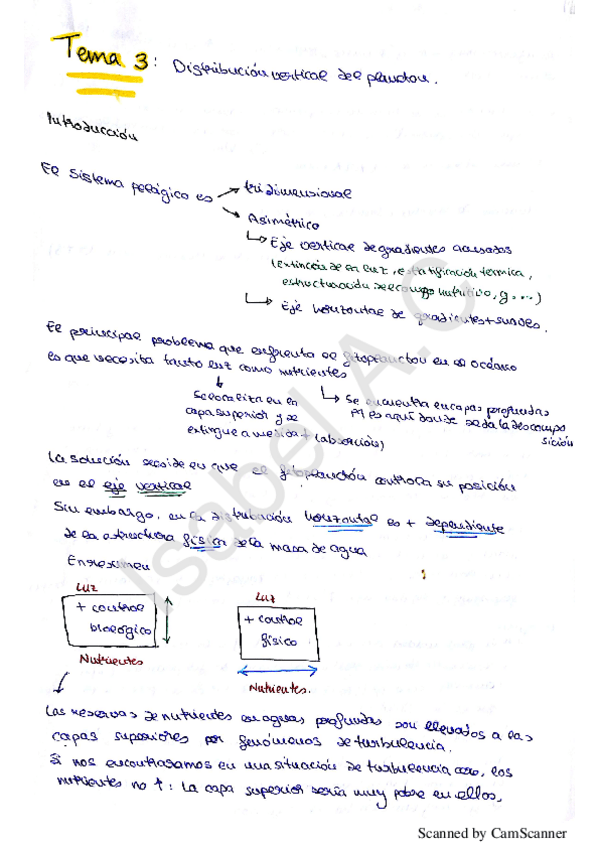 Tema 3: Distribución vertical del plancton.
Introducción
El sistema pelágico es → tridimensional
→ Asimétrico
↳ Eje vertical de gradientes acusados
(extinción de la luz, estratificación térmica,
estructuración del campo nutritivo, g, ...)
↳ Eje horizontal de gradientes + suaves.
El principal problema que enfrenta el fitoplancton en el océano
es que necesita tanto luz como nutrientes
Se localiza en la
capa superior y se
extingue a medida + (absorción)
↳ Se encuentra en capas profundas
es aquí donde se da la descompo
sición
La solución reside en que el fitoplancton controla su posición
en el eje vertical
Sin embargo, en la distribución horizontal es + dependiente
de la estructura física de la masa de agua
En resumen
Luz
+ control
biológico
Nutrientes
Luz
+ control
físico
Nutrientes.
Las reservas de nutrientes en aguas profundas son elevados a las
capas superiores por fenómenos de turbulencia.
Si nos encontrasemos en una situación de turbulencia cero, los
nutrientes no ↑: La capa superior sería muy pobre en ellos.
Isabel A.C
Scanned by CamScanner